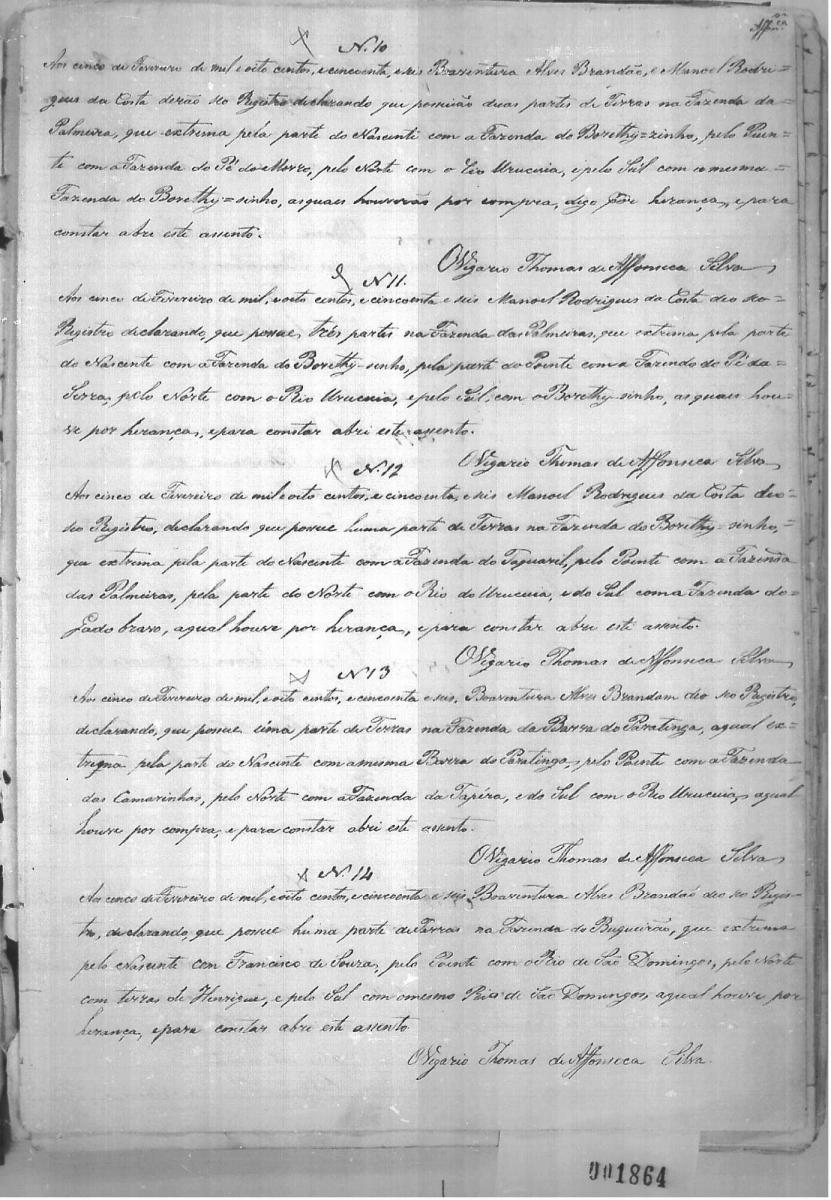 17
Affon.ca
N. 10
Aos cinco de Fevereiro de mil, e oito centos, e cincoenta, e seis Boaventura Alves Brandão, e Manoel Rodri=
gues da Costa derão ao Registro declarando que possuião duas partes de Terras na Fazenda da=
Palmeira, que extrema pela parte do Nascente com a Fazenda do Borethy=zinho, pelo Puen-
te com a Fazenda do Pé do Morro, pelo Norte com o Rio Urucuia, e pelo Sul com a mesma=
Fazenda do Borethy=sinho, as quaes houverão por compra, digo por herança, e para
constar abri este assento.
O Vigario Thomas de Affonseca Silva
N 11.
Aos cinco de Fevereiro de mil, e oito centos, e cincoenta e seis Manoel Rodrigues da Costa deo ao-
Registro declarando, que possue, três partes na Fazenda das Palmeiras, que extrema pela parte
do Nascente com a Fazenda do Borethy-sinho, pela parte do Poente com a Fazenda do Pé da-
Serra, pelo Norte com o Rio Urucuia, e pelo Sul, com o Borethy-sinho, as quaes hou-
ve por herança, e para constar abri este assento.
O Vigario Thomas de Affonseca Silva
N. 12
Aos cinco de Fevereiro de mil e oito centos, e cincoenta, e seis Manoel Rodrigues da Costa deo-
ao Registro, declarando que possue huma parte de Terras na Fazenda do Borethy-sinho,=
que extrema pela parte do Nascente com a Fazenda do Taquaril, pelo Poente com a Fazenda
das Palmeiras, pela parte do Norte com o Rio do Urucuia, e do Sul com a Fazenda do-
Gado bravo, a qual houve por herança, e para constar abri este assento.
O Vigario Thomas de Affonseca Silva
N 13
Aos cinco de Fevereiro de mil, e oito centos, e cincoenta e seis, Boaventura Alves Brandam deo ao Registro,
declarando, que possue uma parte de Terras na Fazenda da Barra do Paratinga, a qual ex-
trema pela parte do Nascente com a mesma Barra do Paratinga, pelo Poente com a Fazenda
das Camarinhas, pelo Norte com a Fazenda da Tapéra, e do Sul com o Rio Urucuia, a qual
houve por compra, e para constar abri este assento.
O Vigario Thomas de Affonseca Silva
N. 14
Aos cinco de Fevereiro de mil, e oito centos, e cincoenta e seis, Boaventura Alves Brandaõ deo ao Regis-
tro, declarando, que possue huma parte de Terras na Fazenda do Buqueirão, que extrema
pelo Nascente com Francisco de Souza, pelo Poente com o Rio de São Domingos, pelo Norte
com terras de Henrique, e pelo Sul com o mesmo Rio de São Domingos, a qual houve por
herança, e para constar abri este assento
O Vigario Thomas de Affonseca Silva.
001864